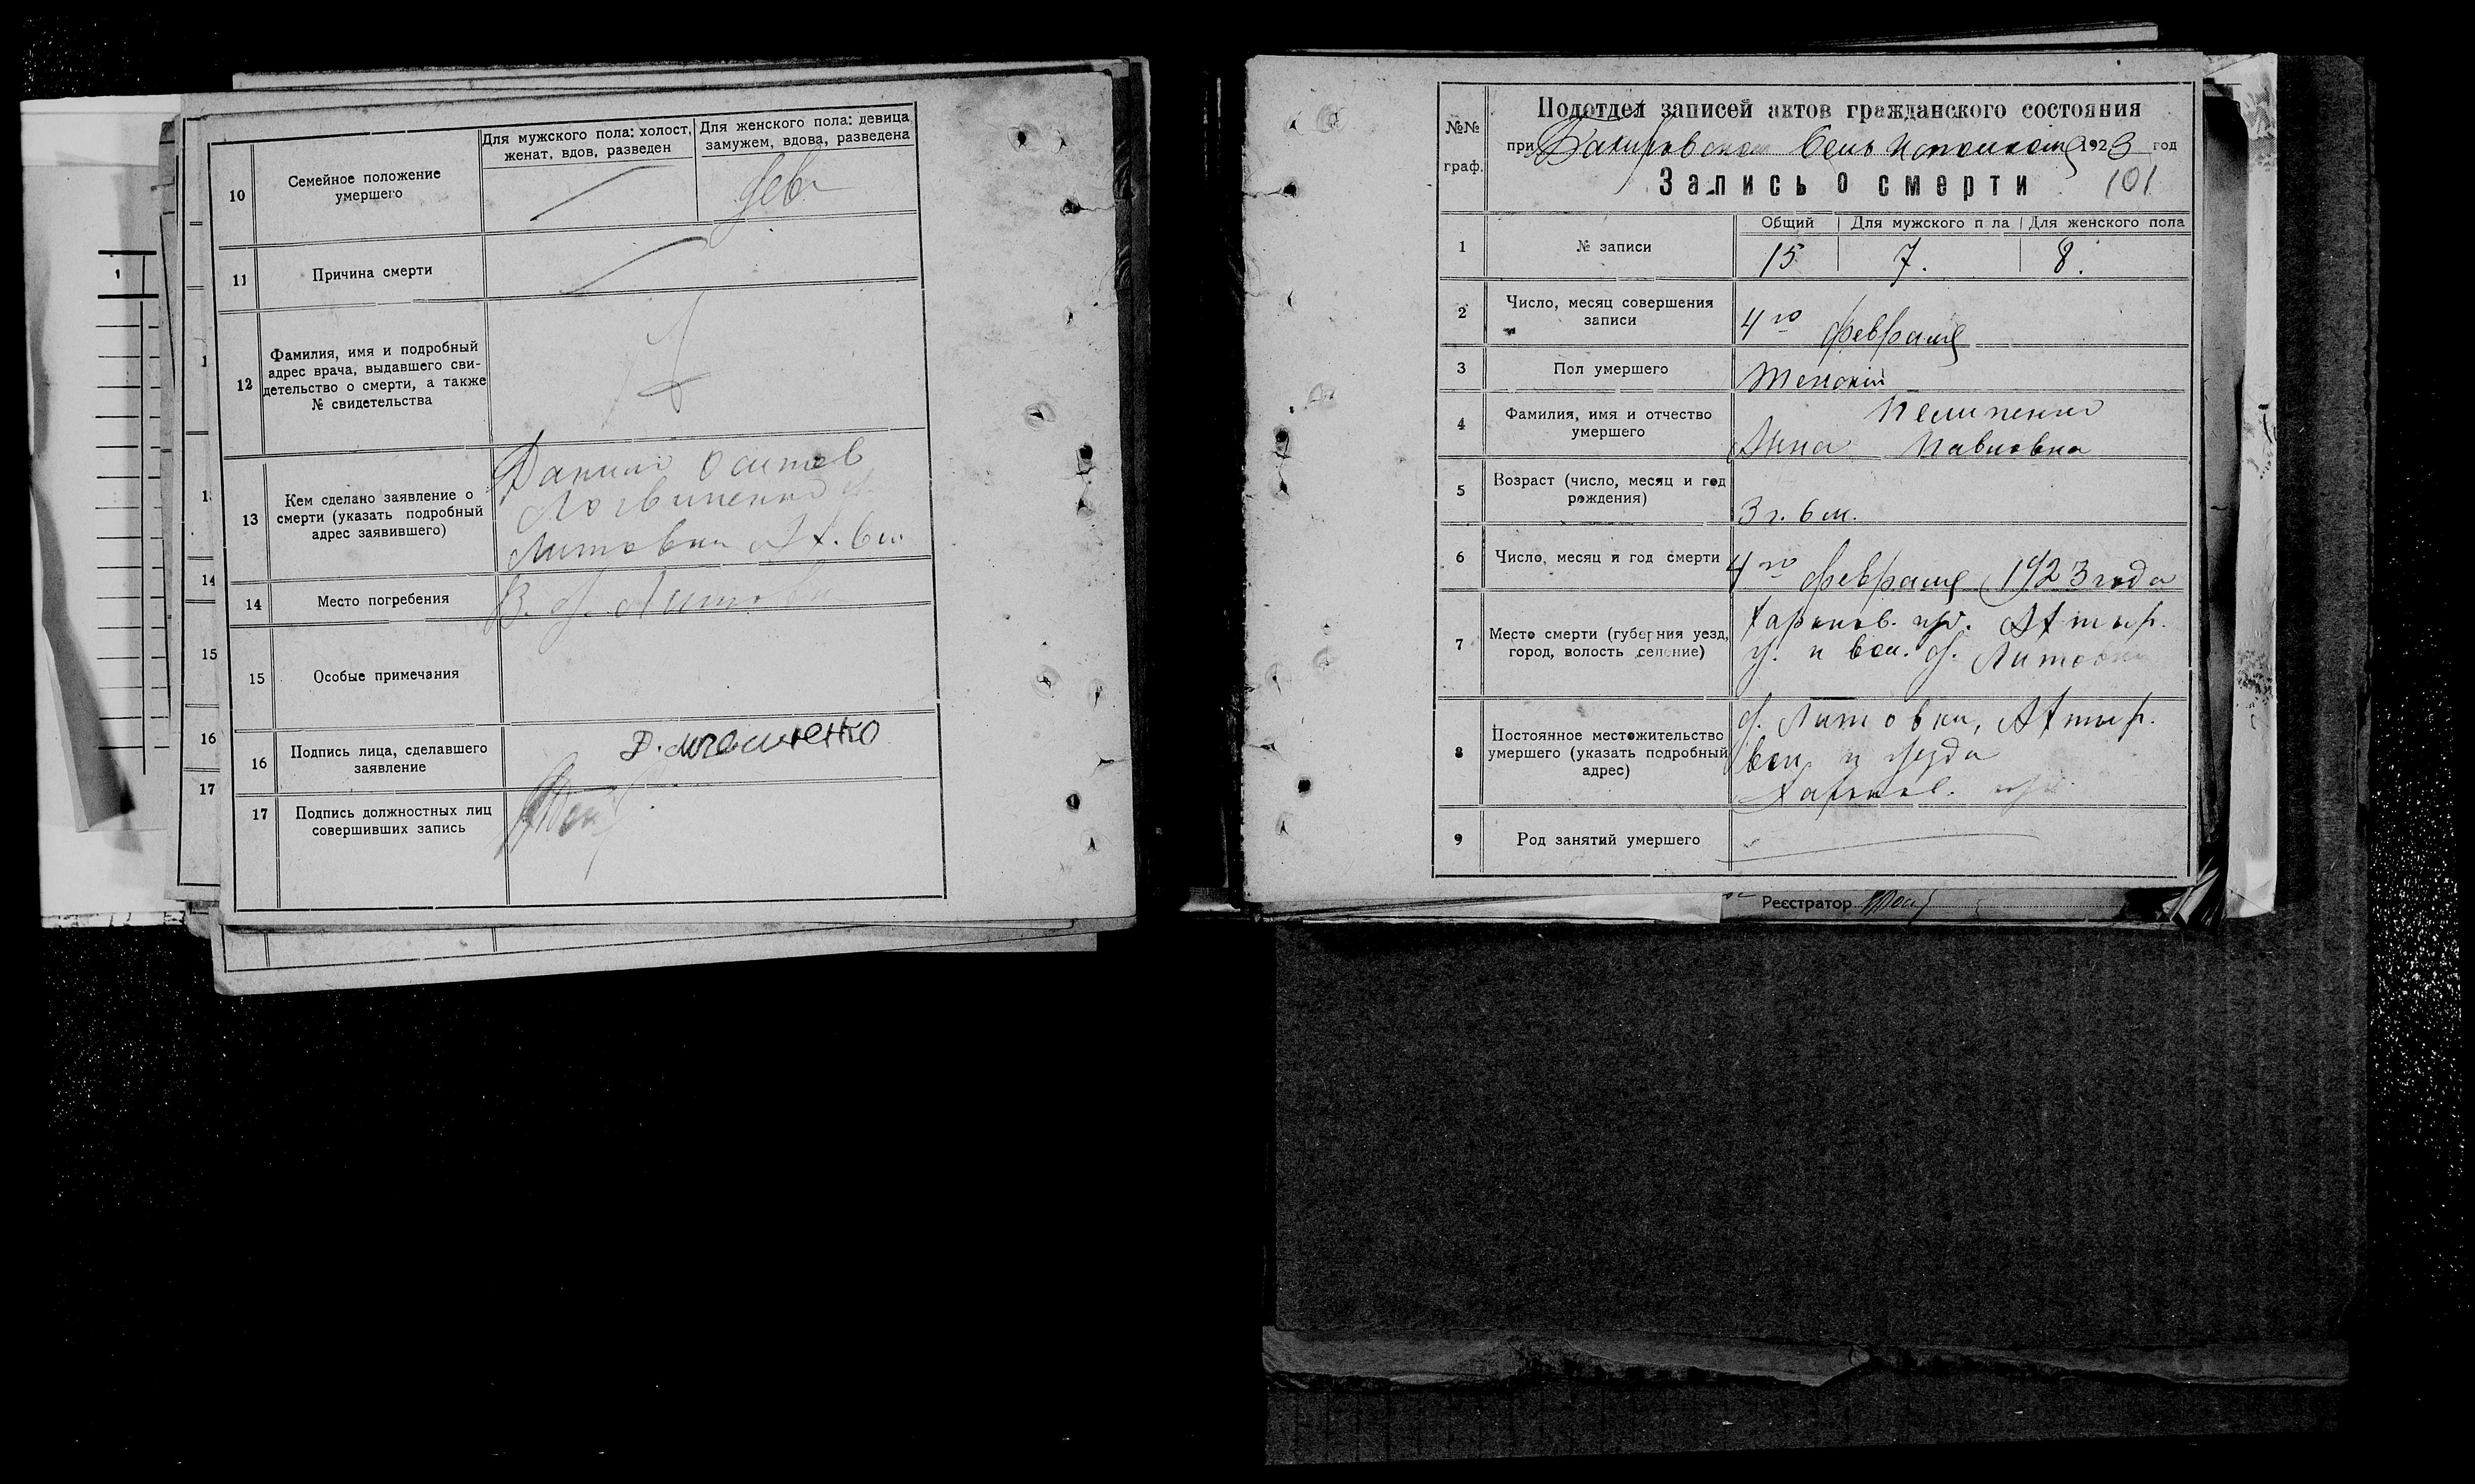 10
Семейное положение
умершего
Для мужского пола: холост,
женат, вдов, разведен
Для женского пола: девица
замужем, вдова, разведена
дев
11
Причина смерти
12
Фамилия, имя и подробный
адрес врача, выдавшего сви-
детельство о смерти, а также
№ свидетельства
13
Кем сделано заявление о
смерти (указать подробный
адрес заявившего)
Данило Осипов
Логвиненко х.
Литовки Ахт. вол.
14
Место погребения
В х. Литовки
15
Особые примечания
16
Подпись лица, сделавшего
заявление
Д. Логвиненко
17
Подпись должностных лиц
совершивших запись
1
14
15
16
17
№№
граф.
Подотдел записей актов гражданского состояния
при Бакировском Исполкоме 1923 год
Запись о смерти
101
1
№ записи
Общий
Для мужского п ла
Для женского пола
15
7.
8.
2
Число, месяц совершения
записи
4го февраля
3
Пол умершего
Женский
4
Фамилия, имя и отчество
умершего
Пелипенко
Анна Павловна
5
Возраст (число, месяц и год
рождения)
3 г. 6 м.
6
Число, месяц и год смерти
4го февраля 1923 года
7
Место смерти (губерния уезд,
город, волость селение)
Харьков. губ. Ахтыр.
у. и вол. х. Литовки
8
Постоянное местожительство
умершего (указать подробный
адрес)
х. Литовки, Ахтыр.
вол. и уезда
Харьков. губ.
9
Род занятий умершего
Реєстратор